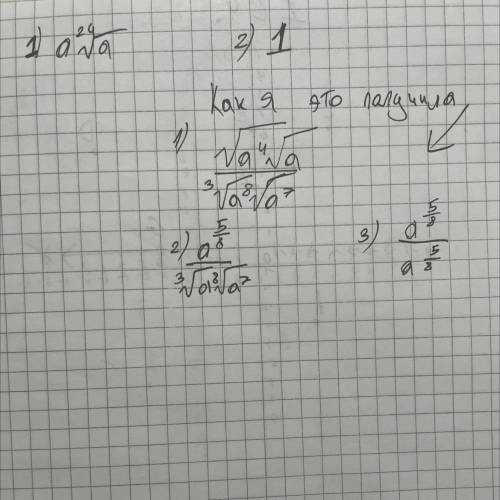 1) a ²⁴√a 2) 1
Как я это получила
1) √(a ⁴√a) / ³√(a ⁸√(a⁷))
2) a^(5/8) / ³√(a ⁸√(a⁷)) 3) a^(5/8) / a^(5/8)